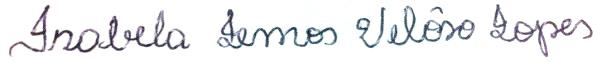 Izabela Lemos Velôso Lopes